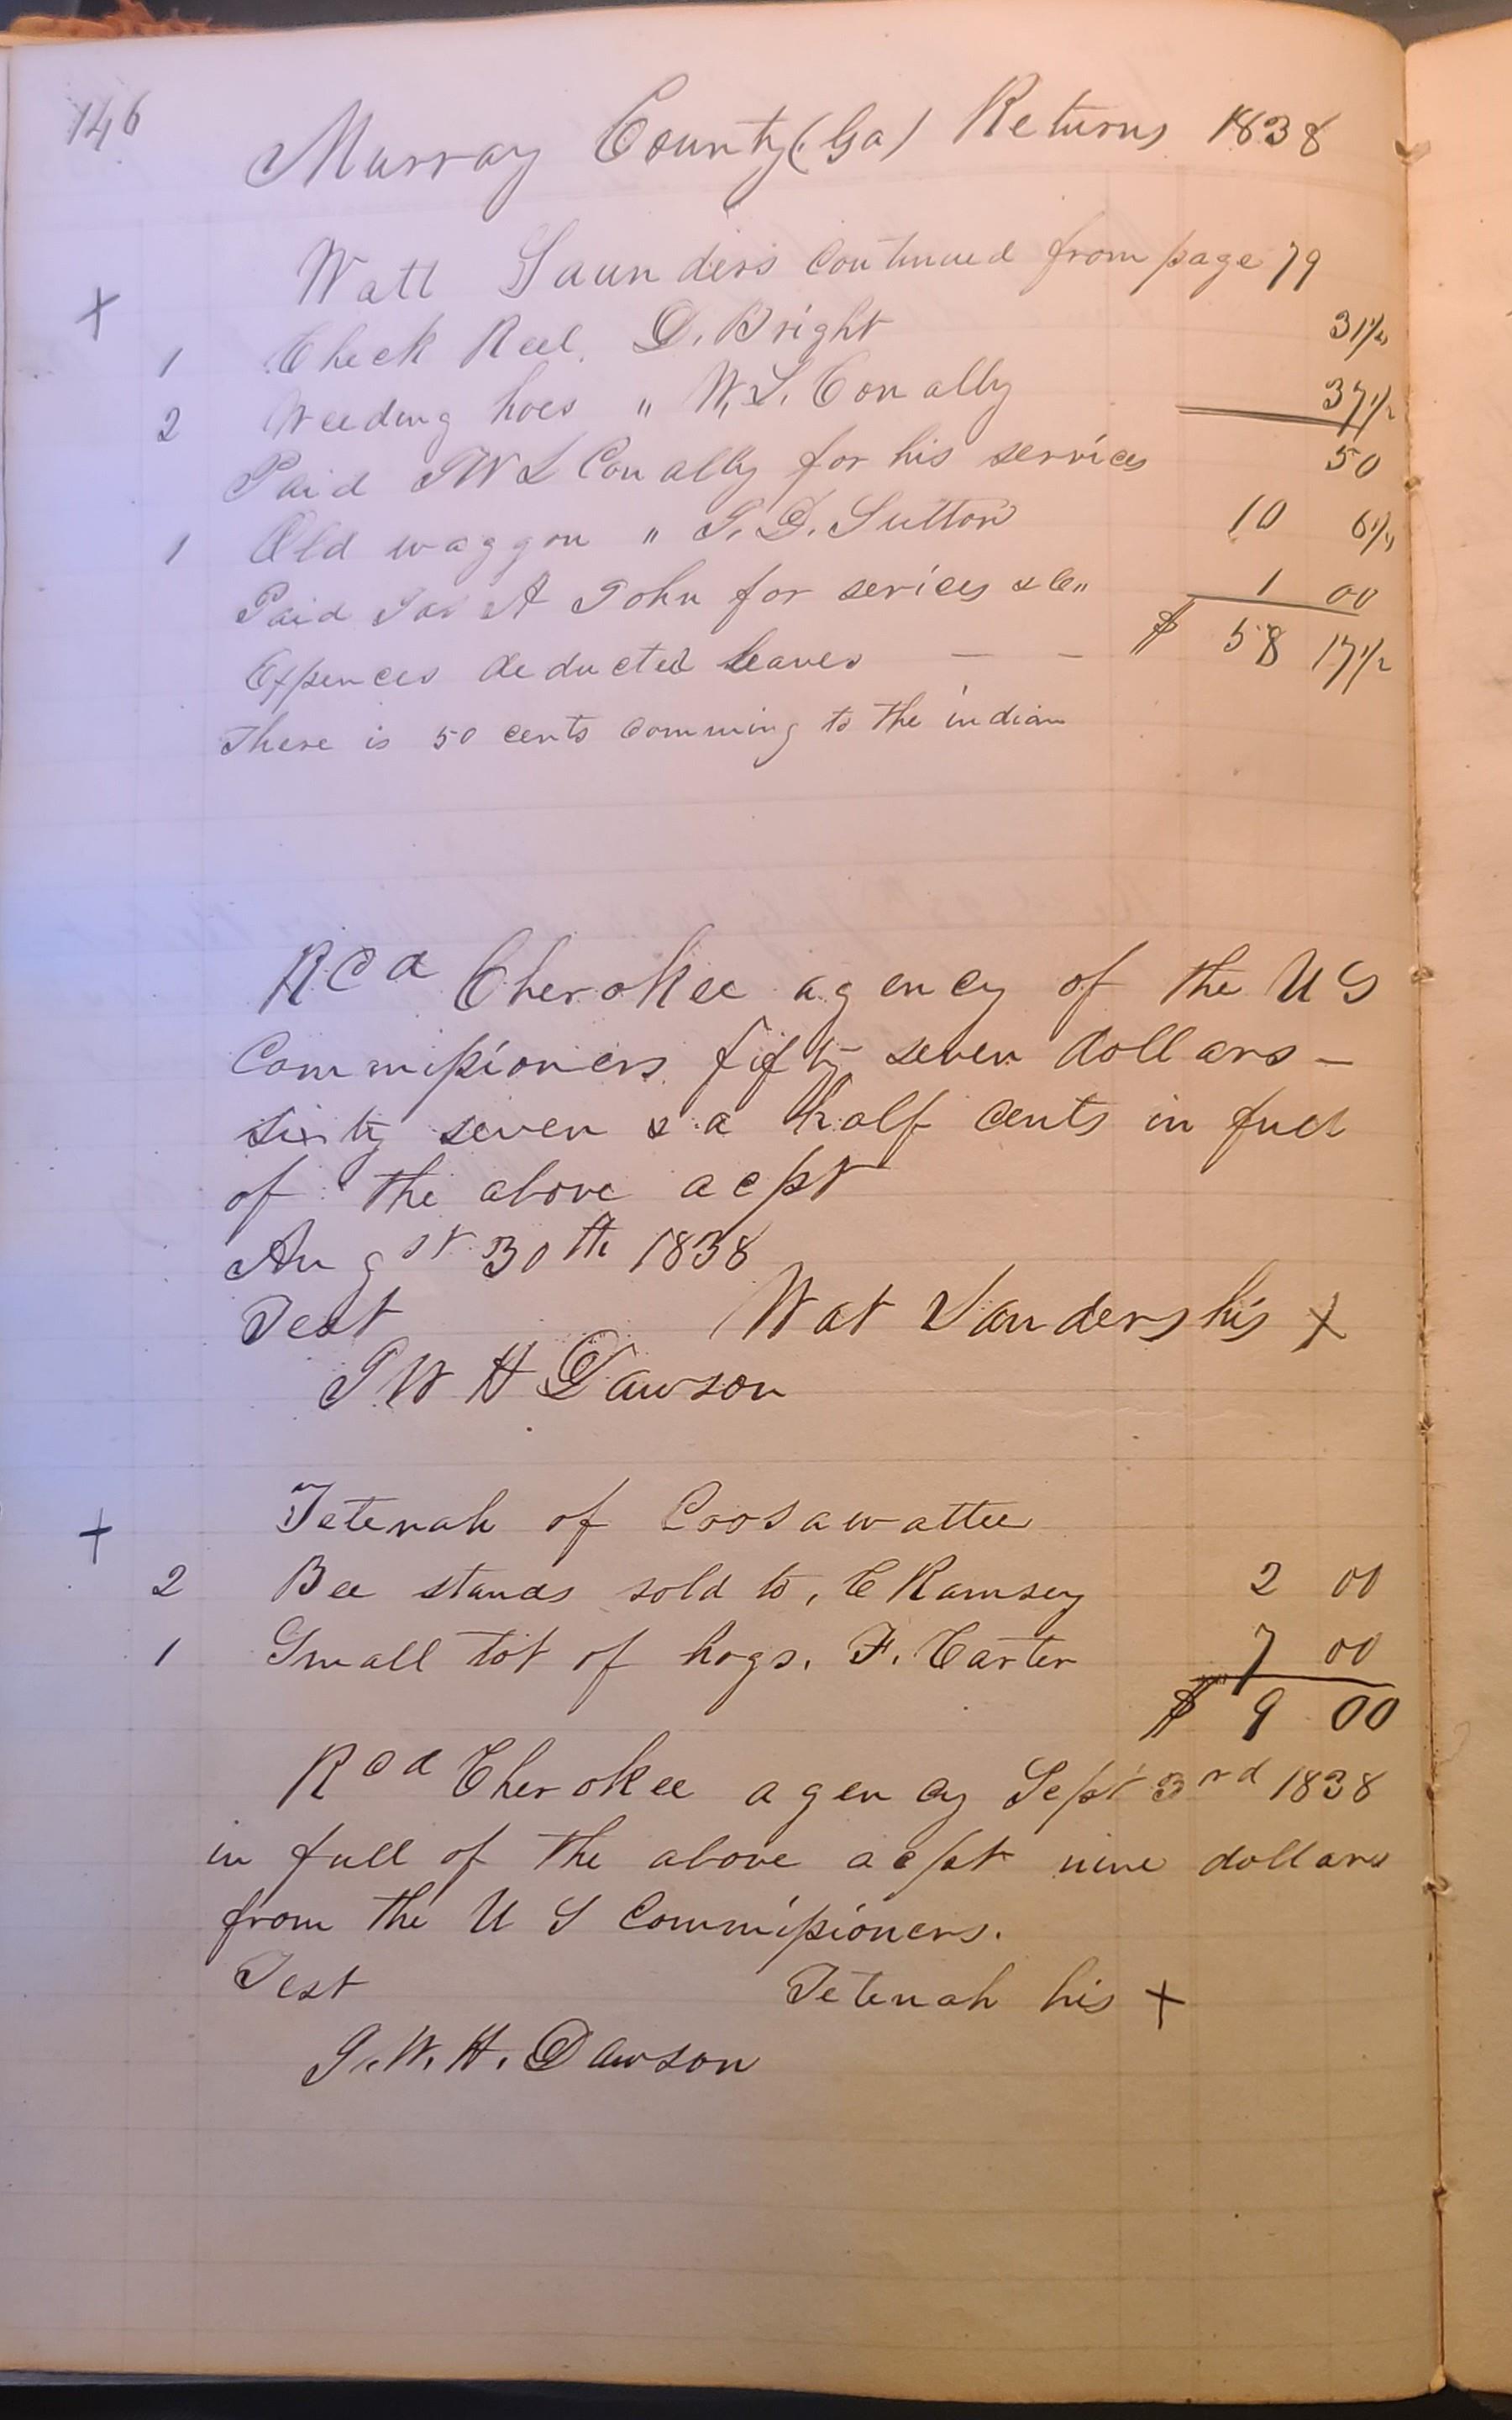 146
Murray County (Ga) Returns 1838
Watt Saunders Continued from page 79
+
1 Check Reel. D. Bright 31 1/2
2 Weeding hoes " W. L. Conally 37 1/2
Paid W L Conally for his services 50
1 Old waggon " D. Sutton 10 6 1/4
Paid A John for serices &c" 1 00
Expences deducted leaves — — $ 58 17 1/2
There is 50 cents comming to the indian
Rcd Cherokee agency of the U S
Commissioners fifty seven dollars —
sixty seven & a half cents in full
of the above acpt
Augst 30th 1838
Test Wat Sanders his X
J W H Dawson
+ Tetenah of Coosawattee
2 Bee stands sold to, C Ramsey 2 00
1 Small lot of hogs. F. Carter 7 00
$ 9 00
Rcd Cherokee agency Sept 3rd 1838
in full of the above acpt nine dollars
from the U S Commissioners.
Test Tetenah his +
J. W. H. Dawson